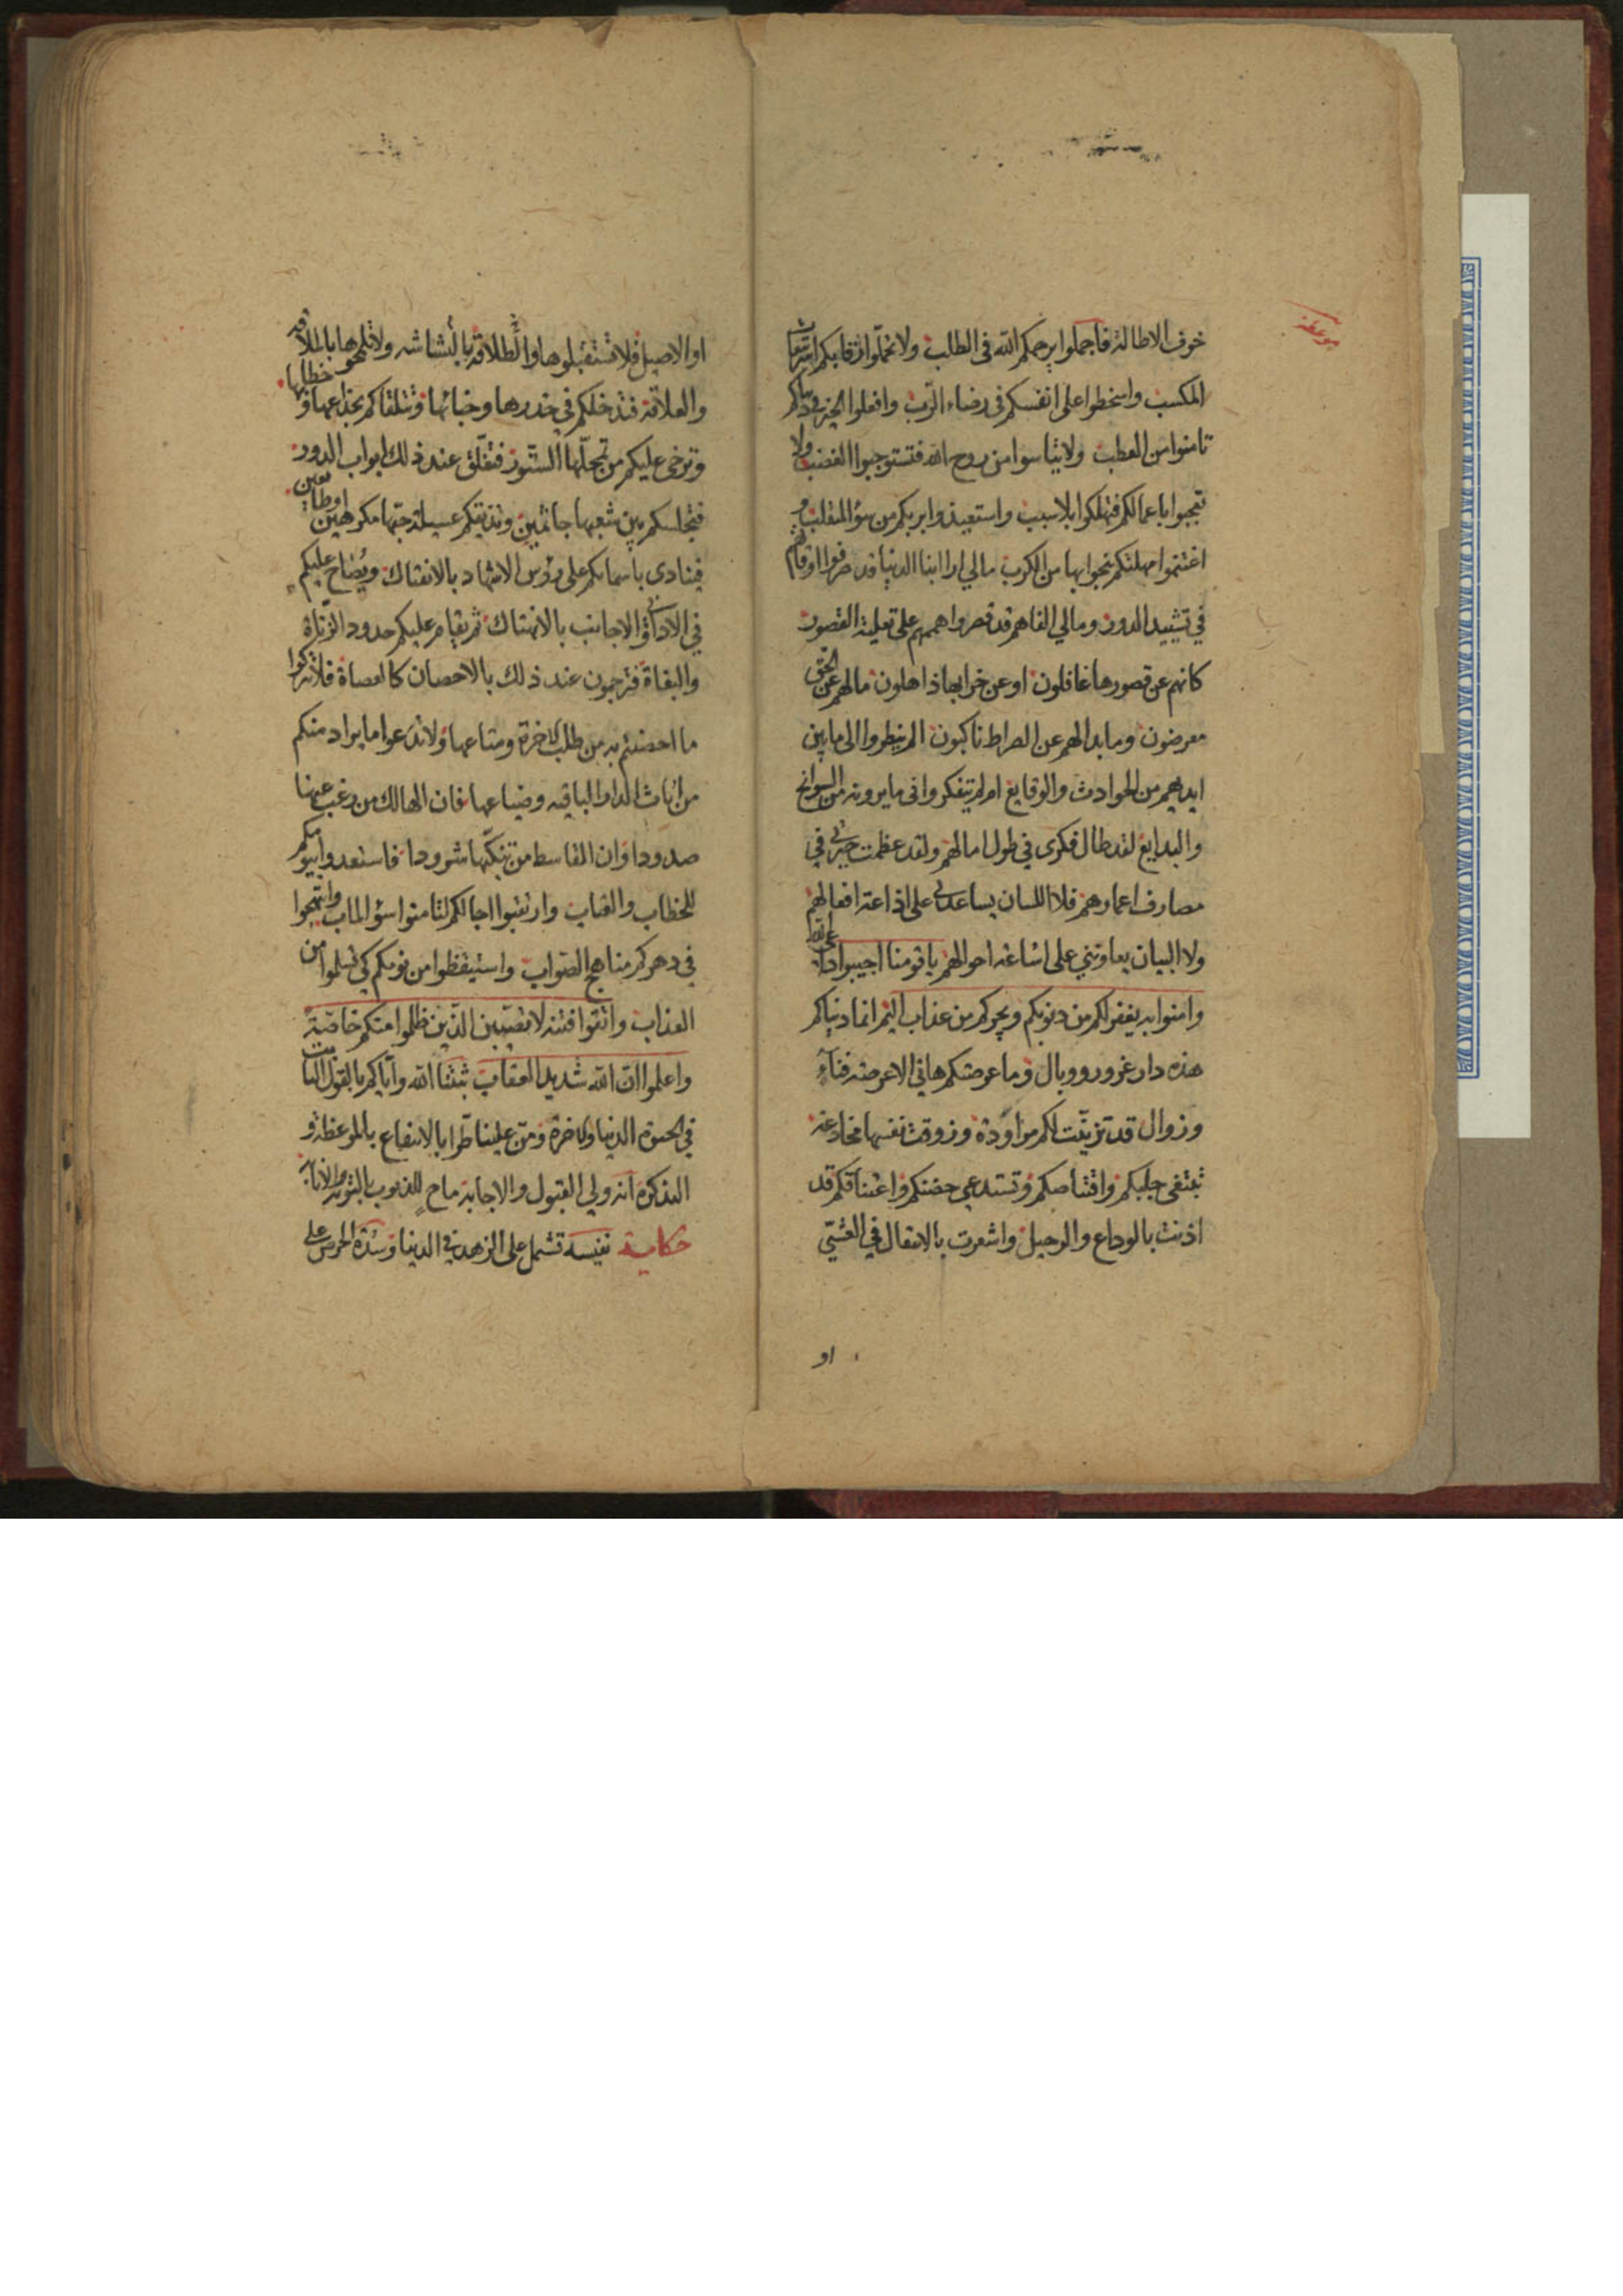 موعظة
خوف الاطالة فاجملوا يرحمكم الله فى الطلب ولا تحملوا رقابكم
المكسب واسخطوا على انفسكم فى رضاء الرب وافعلوا الخير
تامنوا من العطب ولا تيأسوا من روح الله فتستوجبوا الغضب ولا
تعجبوا باعمالكم فتهلكوا بلا سبب واستعيذوا بربكم من سؤ المنقلب و
اغتنموا مهلتكم تنجوا بها من الكرب مالي ارا ابنا الدنيا قد صرفوا اوقاتهم
في تشييد الدور ومالي الفاهم قد قصروا هممهم على تعلية القصور
كانهم عن قصورها غافلون او عن خرابها ذاهلون مالهم عن الحق
معرضون وما بدا لهم عن الصراط ناكبون الم ينظروا الى ما بين
ايديهم من الحوادث والوقايع ام لم يتفكروا فى ما يرونه من السوانح
والبدايع لقد طال فكرى في طول امالهم ولقد عظمت حيرتي في
مصارف اعمارهم فلا اللسان يساعدني على اذاعة افعالهم
ولا البيان يعاونني على اشاعة احوالهم يا قومنا اجيبوا داعي الله
وامنوا به يغفر لكم من ذنوبكم ويجركم من عذاب اليم انما دنياكم
هذه دار غرور ووبال وما عرصتكم هاني الا عرصة فناء
وزوال قد تزينت لكم مراودة وزوقت نفسها مخادعة
تبتغى جلبكم واقتناصكم وتستدعي حضنكم واعتناقكم قد
اذنت بالوداع والرحيل واشعرت بالانتقال في العشي
او
او الاصيل فلا تستقبلوها والطلاقة بالبشاشه ولا تلمحوها بالملاقة
والعلاقة فتدخلكم في خدرها وخبائها وتتلقاكم بخداعها و خطابها
وترخى عليكم من تمحلها الستور فتغلق عند ذلك ابواب الدور
فتجلسكم بين شعبها جاثمين وتذيقكم عسيلة حبها مكرهين او طايعين
فينادى باسمائكم على رؤس الاشهاد بالانفتاك ويصاح عليكم
في الاداني والاجانب بالانهتاك ثم يقام عليكم حدود الزناة
والبغاة فترجمون عند ذلك بالاحصان كالعصاة فلا تتركوا
ما احصنتم به من طلب الاخرة ومتاعها ولا تدعوا ما يراد منكم
من اثاث الدار الباقيه وضياعها فان الهالك من رغب عنها
صدودا وان القاسط من تنكبها شرودا فاستعدوا ليومكم
للخطاب والعتاب وارتقبوا اجالكم لتامنوا سؤ الماب وانتهجوا
في دهركم مناهج الصواب واستيقظوا من نومكم كي تسلموا من
العذاب واتقوا فتنه لا تصيبن الذين ظلموا منكم خاصة
واعلموا ان الله شديد العقاب ثبتنا الله واياكم بالقول الثابت
في الحيوة الدنيا والاخرة ومن علينا طرا بالانتفاع بالموعظة و
التذكره انه ولي القبول والاجابة ماح للذنوب بالتوبة والانابة
حكاية نفيسه تشمل على الزهد في الدنيا وشدة الحرص على